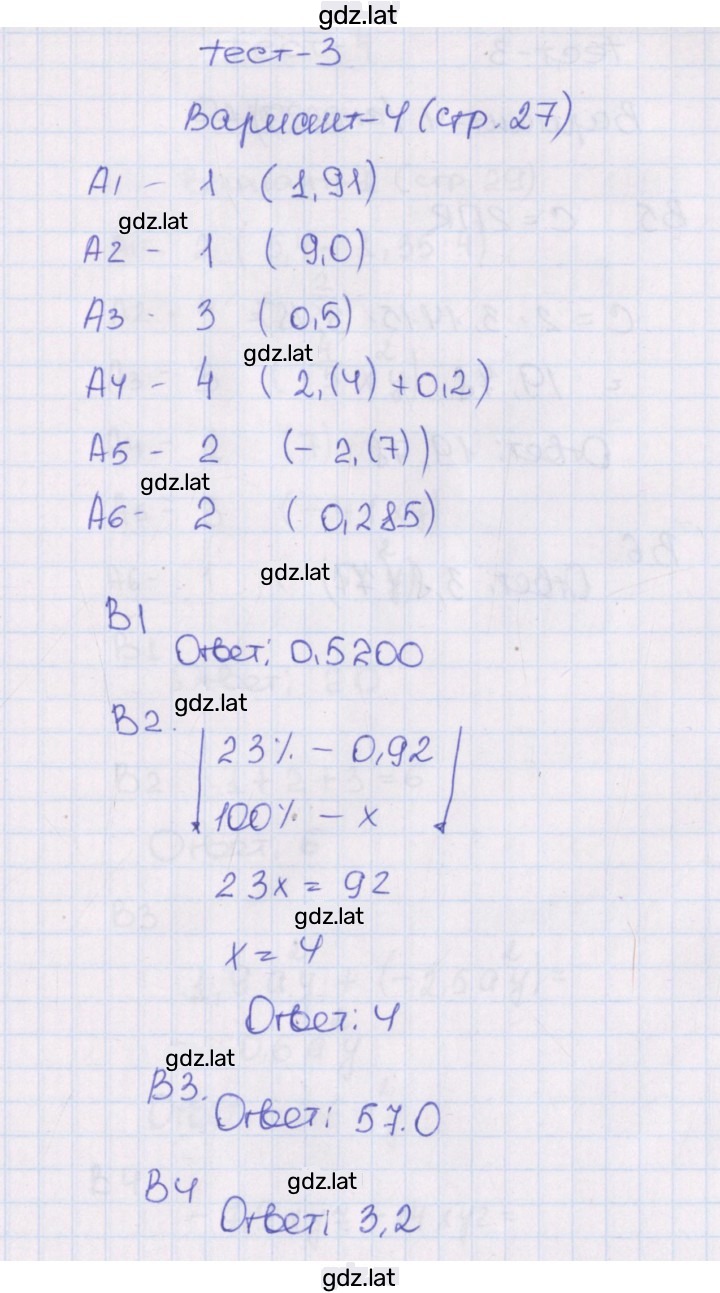 gdz.lat
тест-3
Вариант-4 (стр. 27)
А1 - 1 (1,91)
gdz.lat
А2 - 1 (9,0)
А3 - 3 (0,5)
gdz.lat
А4 - 4 (2,(4)+0,2)
А5 - 2 (-2,(7))
gdz.lat
А6 - 2 (0,285)
gdz.lat
В1
Ответ: 0,5200
gdz.lat
В2.
23% - 0,92
100% - х
23х = 92
gdz.lat
х = 4
Ответ: 4
gdz.lat
В3.
Ответ: 57.0
gdz.lat
В4
Ответ: 3,2
gdz.lat